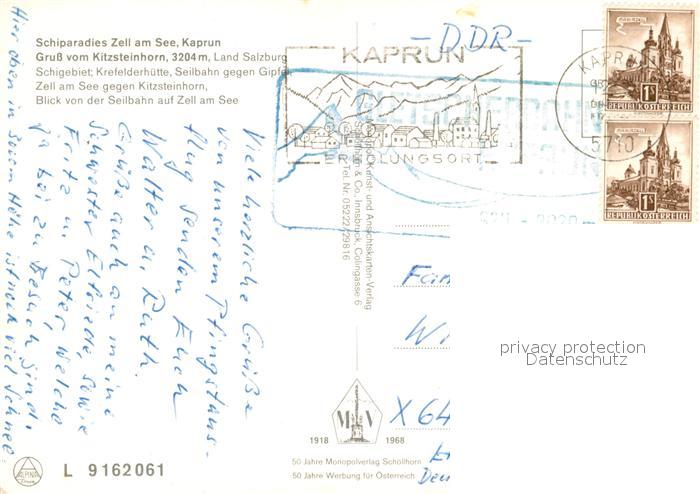 Schiparadies Zell am See, Kaprun
Gruß vom Kitzsteinhorn, 3204m, Land Salzburg
Schigebiet; Krefelderhütte, Seilbahn gegen Gipfel
Zell am See gegen Kitzsteinhorn,
Blick von der Seilbahn auf Zell am See
- DDR -
KAPRUN
ERHOLUNGSORT
KAPRUN
5710
MARIAZELL
1 S
REPUBLIK ÖSTERREICH
MARIAZELL
1 S
REPUBLIK ÖSTERREICH
Viele herzliche Grüße
von unserem Pfingstaus-
flug senden Euch
Walter u. Ruth.
Grüße auch an meine
Schwester Elfriede, sowie
Fritz u. Peter, welche
ja bei zu Besuch sind.
Hier oben in 3000m Höhe ist noch viel Schnee
Kunst- und Ansichtskarten-Verlag
& Co., Innsbruck, Colingasse 6
Tel. Nr. 05222/29816
Fam
Wi
X 64
privacy protection
Datenschutz
M V
1918 1968
50 Jahre Monopolverlag Schöllhorn
50 Jahre Werbung für Österreich
ALPINA
Druck
L 9162061